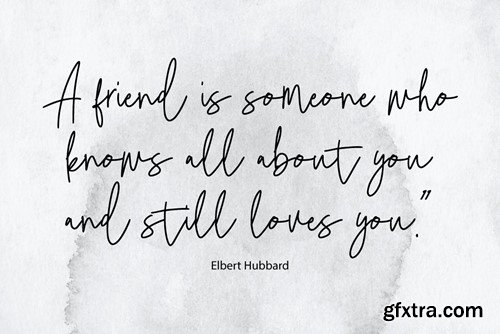 A friend is someone who
knows all about you
and still loves you."
Elbert Hubbard
gfxtra.com